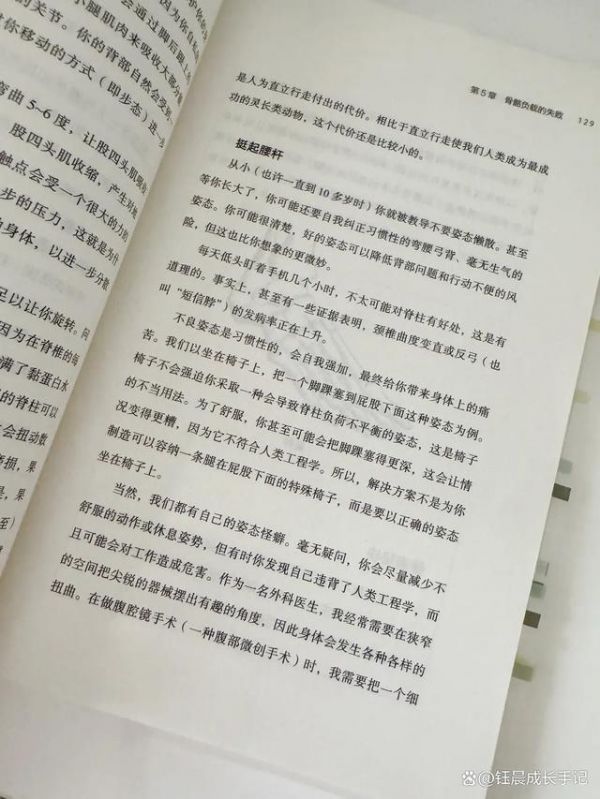 小腿肌肉来吸收大部分
的关节。你的背部自然会受到
对你移动的方式（即步态）进一
弯曲 5-6 度，让股四头肌
股四头肌收缩，产生对
触点会受一个很大的力的
步的压力，这就是为什
身体，以进一步分散
足以让你旋转。问
因为在脊椎的每
满了黏蛋白水
的脊柱可以
会扭动数
第 5 章 骨骼负载的失败 129
是人为直立行走付出的代价。相比于直立行走使我们人类成为最成
功的灵长类动物，这个代价还是比较小的。
挺起腰杆
从小（也许一直到 10 多岁时）你就被教导不要姿态懒散。甚至
等你长大了，你可能还要自我纠正习惯性的弯腰弓背、毫无生气的
姿态。你可能很清楚，好的姿态可以降低背部问题和行动不便的风
险，但这也比你想象的更微妙。
每天低头盯着手机几个小时，不太可能对脊柱有好处，这是有
道理的。事实上，甚至有一些证据表明，颈椎曲度变直或反弓（也
叫“短信脖”）的发病率正在上升。
不良姿态是习惯性的，会自我强加，最终给你带来身体上的痛
苦。我们以坐在椅子上，把一个脚踝塞到屁股下面这种姿态为例。
椅子不会强迫你采取一种会导致脊柱负荷不平衡的姿态，这是椅子
的不当用法。为了舒服，你甚至可能会把脚踝塞得更深，这会让情
况变得更糟，因为它不符合人类工程学。所以，解决方案不是为你
制造可以容纳一条腿在屁股下面的特殊椅子，而是要以正确的姿态
坐在椅子上。
当然，我们都有自己的姿态怪癖。毫无疑问，你会尽量减少不
舒服的动作或休息姿势，但有时你发现自己违背了人类工程学，而
且可能会对工作造成危害。作为一名外科医生，我经常需要在狭窄
的空间把尖锐的器械摆出有趣的角度，因此身体会发生各种各样的
扭曲。在做腹腔镜手术（一种腹部微创手术）时，我需要把一个细
@钰晨成长手记